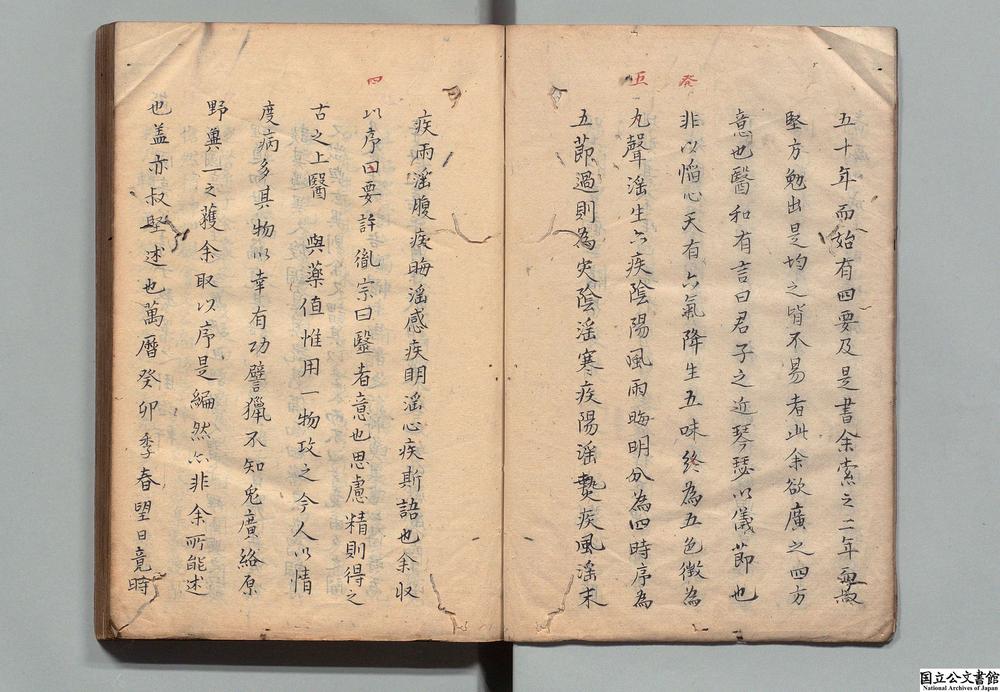 癸
五
五十年而始有四要及是書余索之二年而叔
堅方勉出是均之皆不易者此余欲廣之四方
意也醫和有言曰君子之近琴瑟以儀節也
非以慆心天有六氣降生五味終為五色徵為
九聲淫生六疾陰陽風雨晦明分為四時序為
五莭過則為灾陰淫寒疾陽淫𤍠疾風淫末
四
疾雨淫腹疾晦淫惑疾明淫心疾斯語也余収
以序四要許胤宗曰毉者意也思慮精則得之
古之上醫 與藥值惟用一物攻之今人以情
度病多其物以幸有功譬獵不知兔廣絡原
野兾一之蒦余取以序是編然亦非余所能述
也盖亦叔堅述也萬曆癸卯季春望日竟時
国立公文書館
National Archives of Japan